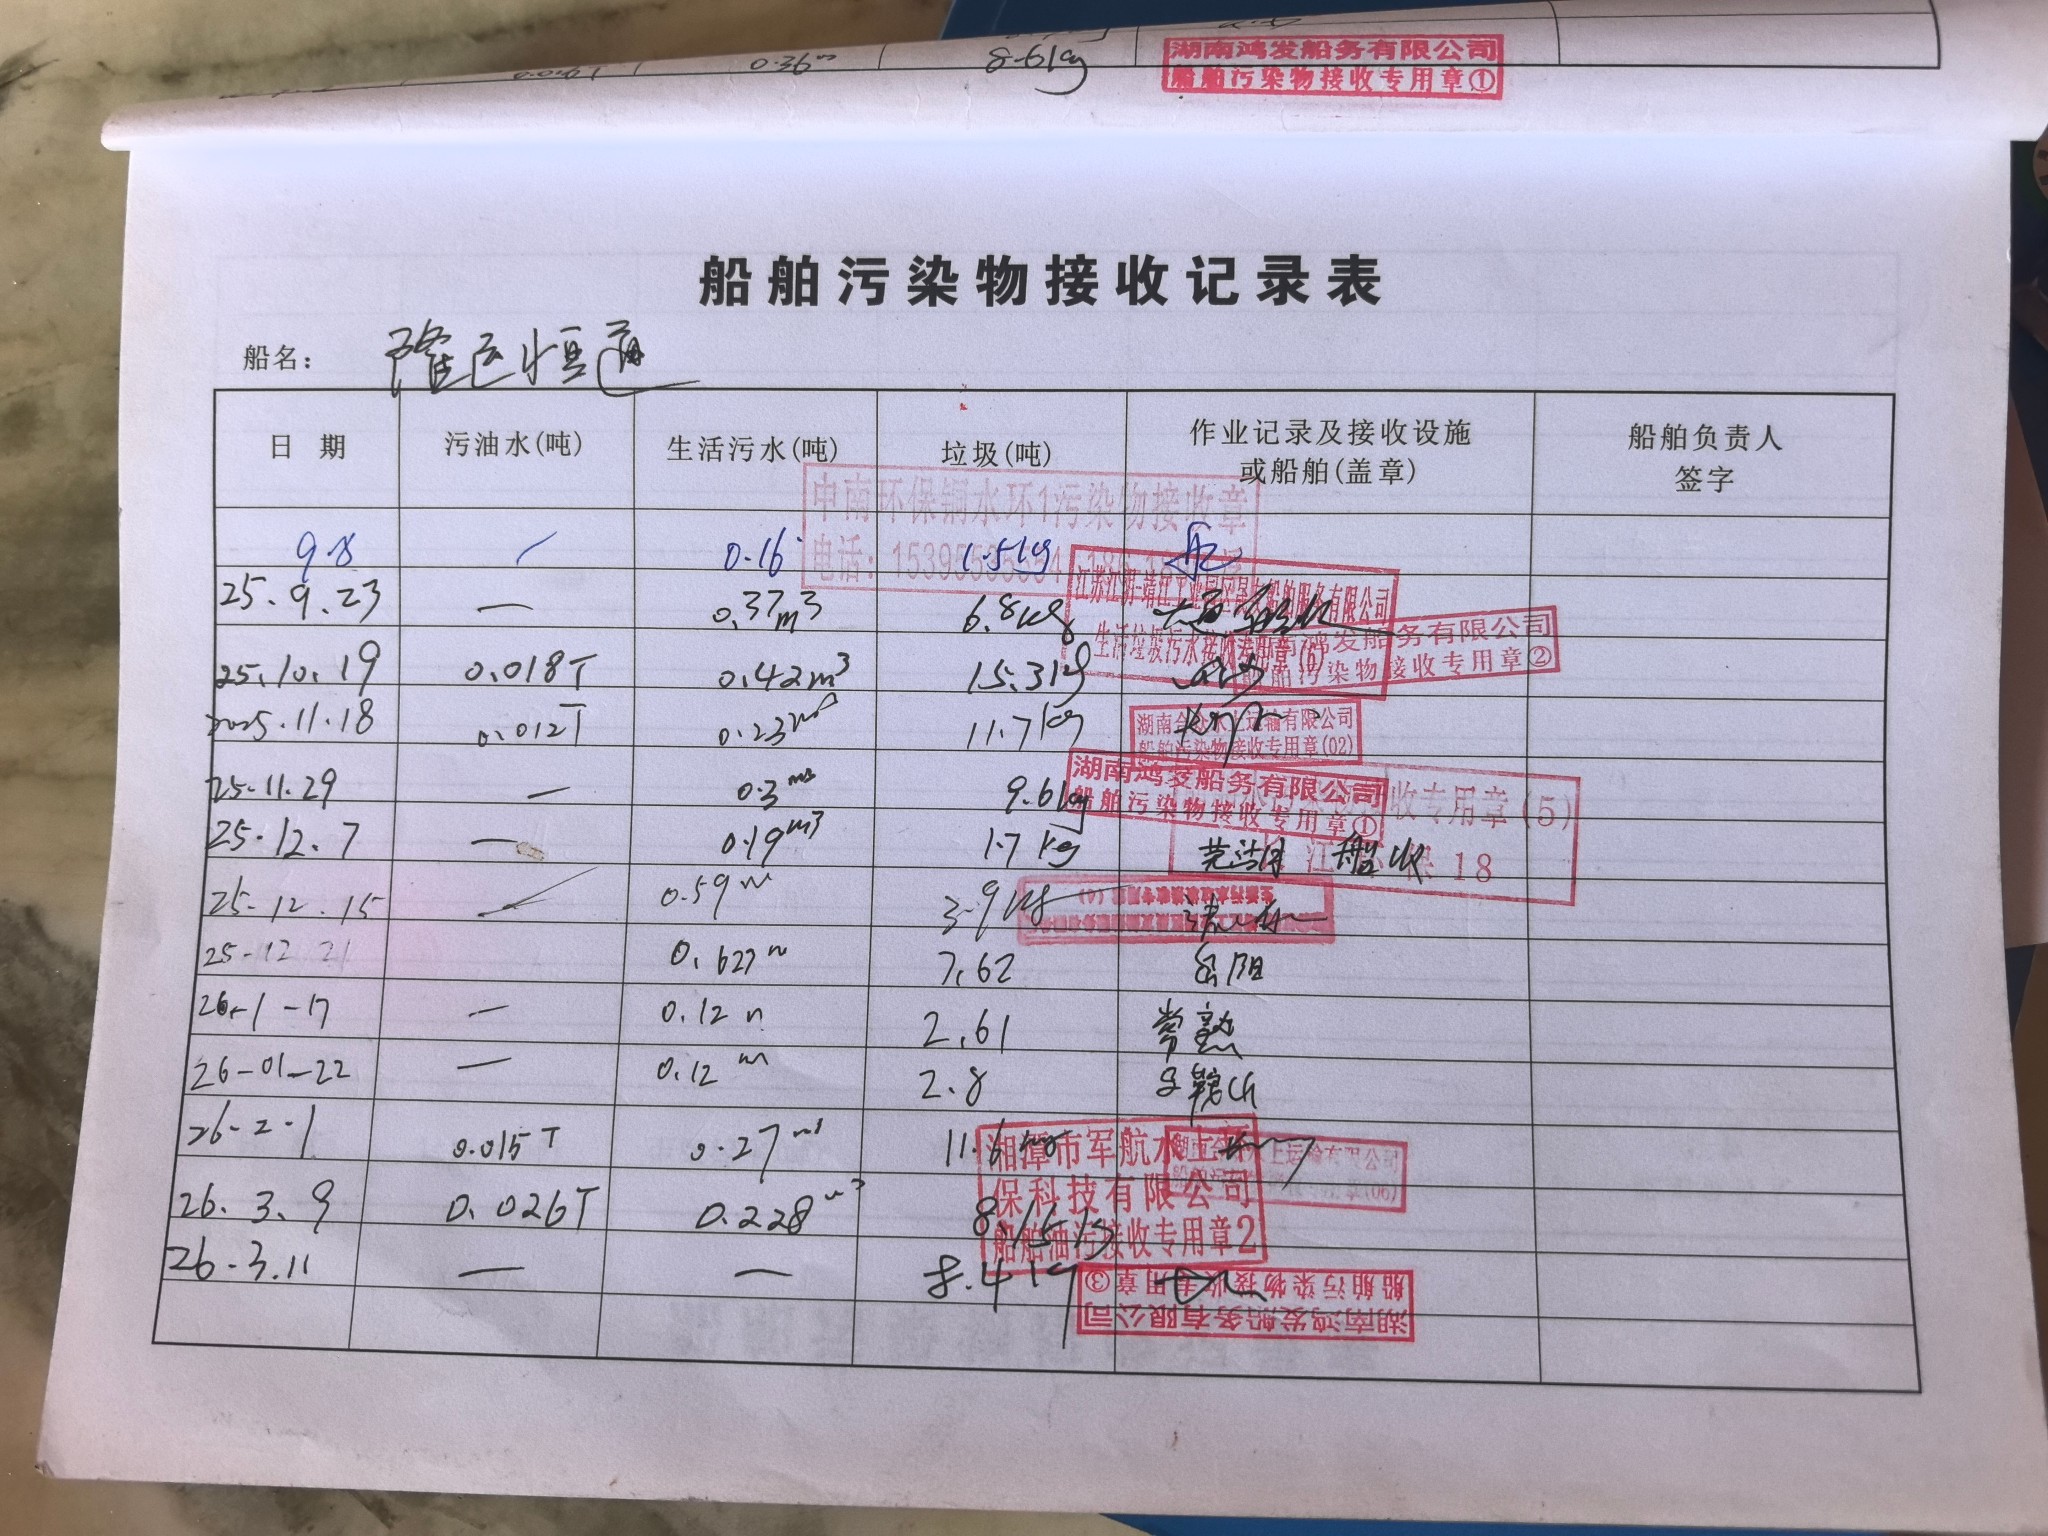 0.36 8.6kg
湖南鸿发船务有限公司
船舶污染物接收专用章①
船舶污染物接收记录表
船名： 隆运恒通
日期 污油水(吨) 生活污水(吨) 垃圾(吨) 作业记录及接收设施或船舶(盖章) 船舶负责人签字
中南环保铜水环1污染物接收章
电话：
9.8 / 0.16 1.5kg
江苏江阴-靖江工业园区 船舶服务有限公司
生活垃圾污水接收专用章(6)
25.9.23 — 0.37m3 6.8kg
鸿发船务有限公司
船舶污染物接收专用章②
25.10.19 0.018T 0.42m3 15.3kg
2025.11.18 0.012T 0.23m3 11.7kg
湖南合众水上运输有限公司
船舶污染物接收专用章(02)
25.11.29 — 0.3m3 9.6kg
湖南鸿发船务有限公司
船舶污染物接收专用章①
收专用章(5)
18
25.12.7 — 0.19m3 1.7kg 芜湖 船收
25-12.15 / 0.59m 3.9kg
25-12 21 0.627m 7.62 岳阳
26-1-17 — 0.12m 2.61 常熟
26-01-22 — 0.12m 2.8 马鞍山
26-2-1 0.015T 0.27m3 11.6kg
湘潭市军航水上环
保科技有限公司
船舶油污接收专用章2
上运输有限公司
26.3.9 0.026T 0.228m3 8.15kg
26-3.11 — — 8.4kg
湖南鸿发船务有限公司
船舶污染物接收专用章③